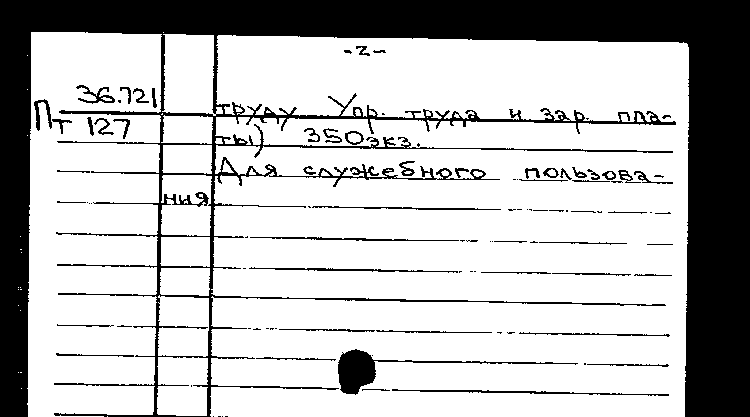 -2-
36.721
Пт 127
труду Упр. труда и зар. пла-
ты) 350экз.
Для служебного пользова-
ния